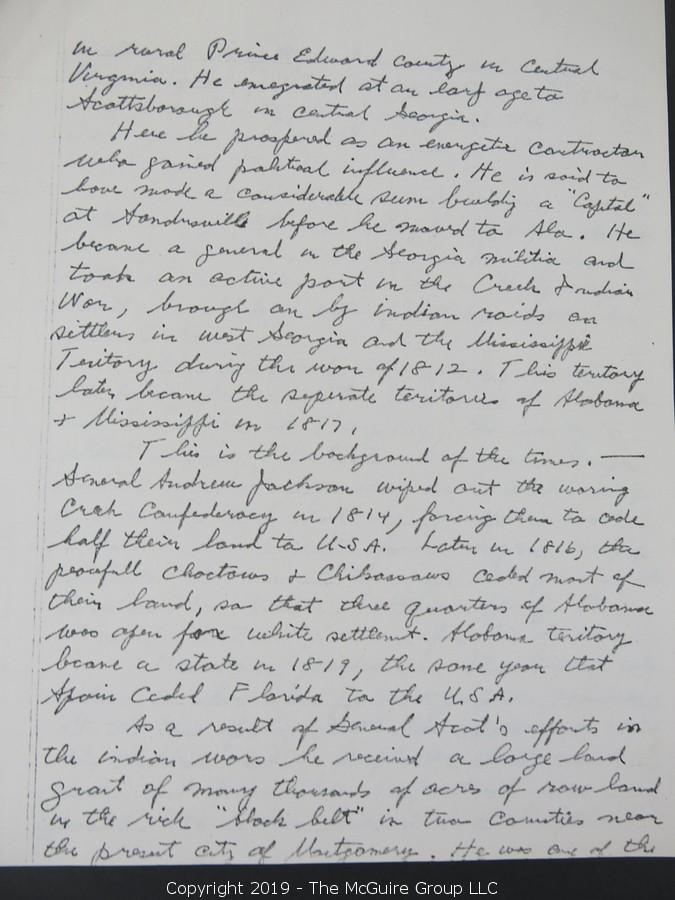 in rural Prince Edward County in Central
Virginia. He emegrated at an earl age to
Scottsborough in central Georgia.
Here he prospered as an energetic contractor
who gained political influence. He is said to
have made a considerable sum buildig a "Capital"
at Sandersville before he moved to Ala. He
became a general in the Georgia militia and
took an active part in the Creek Indian
War, brough on by indian raids on
settlers in west Georgia and the Mississippi
Teritory during the war of 1812. This teritory
later became the seperate teritories of Alabama
& Mississippi in 1817.
This is the background of the times. —
General Andrew Jackson wiped out the waring
Creek Confederacy in 1814, forcing them to cede
half their land to U.S.A. Later in 1816, the
peacefull Choctaws & Chikassaws ceded most of
their land, so that three quarters of Alabama
was open for white settlemt. Alabama teritory
became a state in 1819, the same year that
Spain Ceded Florida to the U.S.A.
As a result of General Scot's efforts in
the indian wars he received a large land
grant of many thousands of acres of raw land
in the rich "black belt" in two Counties near
the present city of Montgomery. He was one of the
Copyright 2019 - The McGuire Group LLC